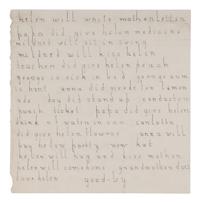 helen will write mother letter
papa did give helen medicine
mildred will sit in swing
mildred will kiss helen
teacher did give helen peach
george is sick in bed george arm
is hurt anna did give helen lemon
ade dog did stand up conductor
punch ticket papa did give helen
drink of water in car carlotta
did give helen flowers anna will
buy helen pretty new hat
helen will hug and kiss mother
helen will come home grandmother does
love helen good-by